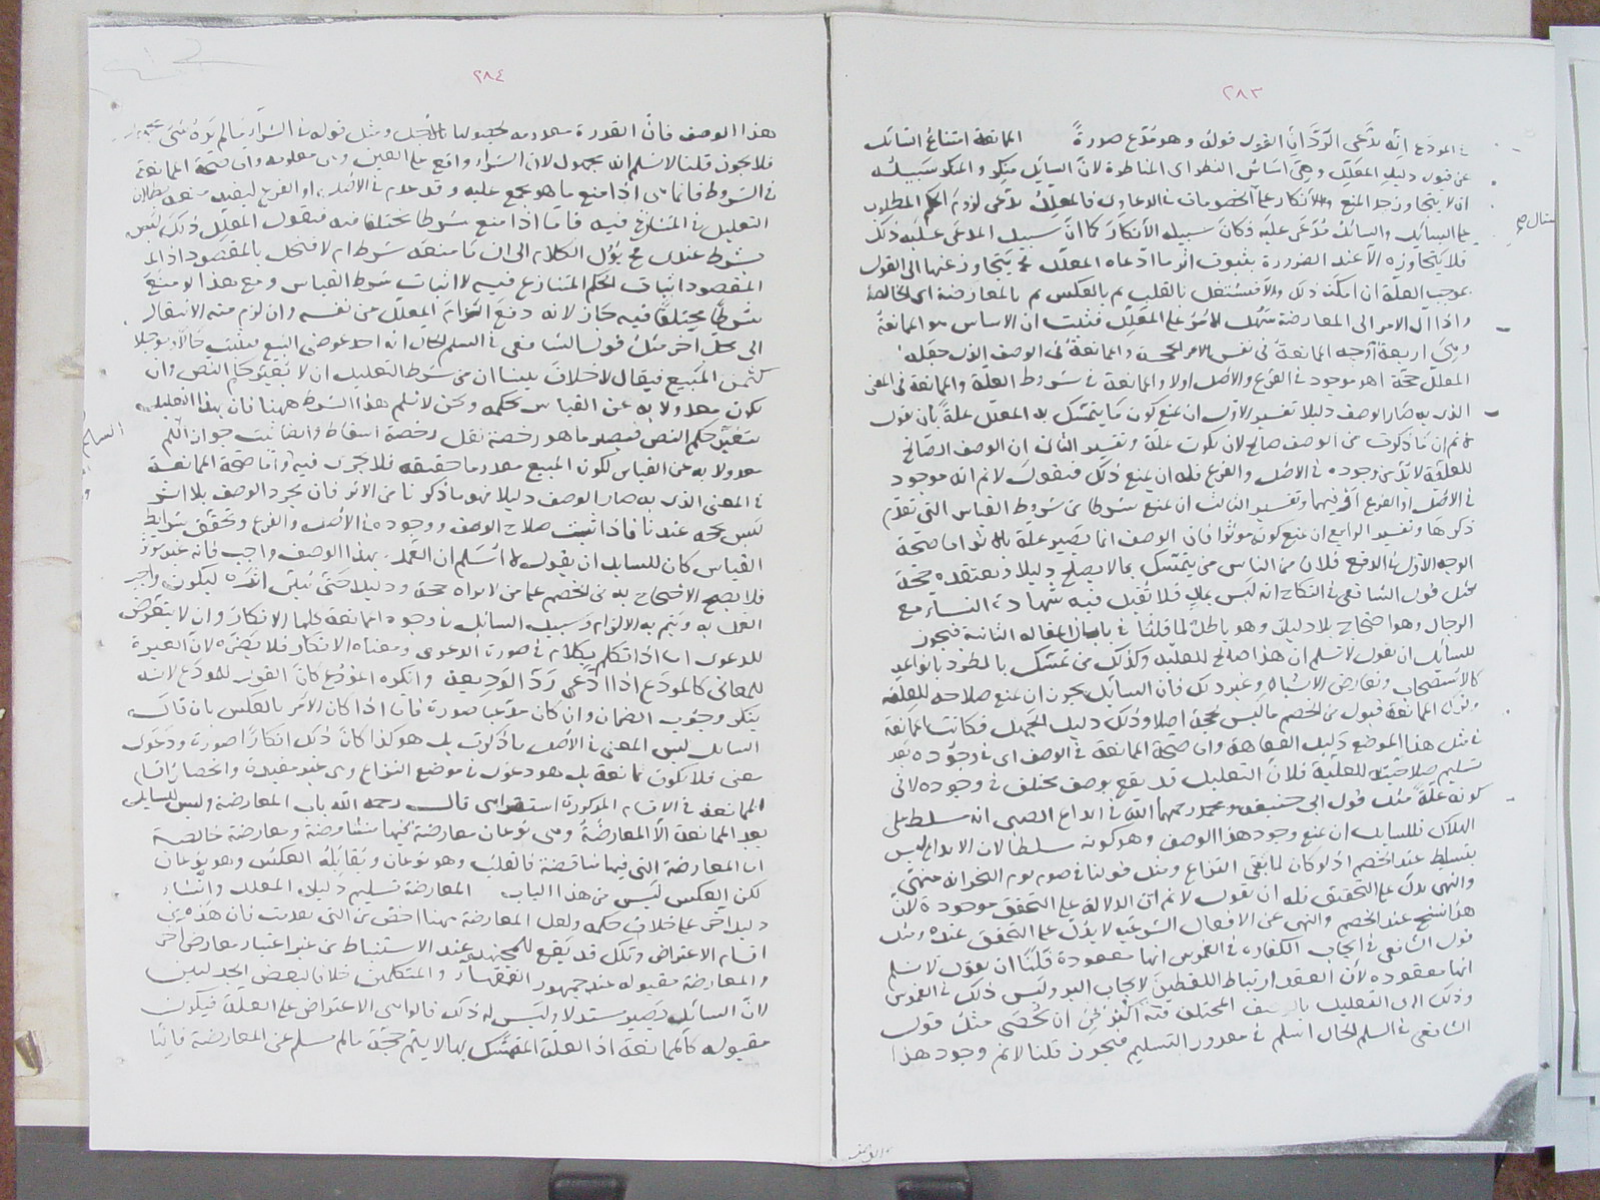 ٢٨٣
في المودع انه يدعى الرد ان القول قوله وهو مدع صورة الممانعة امتناع السائل
عن قبول دليل المعلل وهي اساس النظر اى المناظرة لان السائل منكر والمنكر سبيله
ان لا يتجاوز حد المنع والانكار على الخصومات في الدعاوى فالمعلل يدعى لزوم الحكم المطلوب
على السائل والسائل مدعى عليه فكان سبيله الانكار كما ان سبيل المدعى عليه ذلك
فلا يتجاوزه الا عند الضرورة بثبوت اثر ما ادعاه المعلل ثم يتجاوز عنها الى القول
بموجب العلة ان امكنه ذلك والا فيشتغل بالقلب ثم بالعكس ثم بالمعارضة اى الخالصة
واذا آل الامر الى المعارضة سهل الامر على المعلل فثبت ان الاساس هو الممانعة
وهي اربعة اوجه الممانعة في نفس الحجة والممانعة في الوصف الذى جعله
المعلل حجة اهو موجود في الفرع والاصل اولا والممانعة في شروط العلة والممانعة في المعنى
الذى به صار الوصف دليلا تفسير الاول ان يمنع كون ما يتمسك به المعلل علة بان يقول
لانم ان ما ذكرت من الوصف صالح لان يكون علة وتفسير الثانى ان الوصف الصالح
للعلة لا بد من وجوده في الاصل والفرع فله ان يمنع ذلك فيقول لانم انه موجود
في الاصل او الفرع او فيهما وتفسير الثالث ان يمنع شرطا من شروط القياس التى تقدم
ذكرها وتفسير الرابع ان يمنع كونه مؤثرا فان الوصف انما يصير علة بالاثر اما صحة
الوجه الاول في الدفع فلان من الناس من يتمسك بما لا يصلح دليلا ويعتقده حجة
مثل قول الشافعى في النكاح انه ليس بمال فلا تقبل فيه شهادة النساء مع
الرجال وهو احتجاج بلا دليل وهو باطل لما قلنا في باب المقالة الثانية فيجوز
للسائل ان يقول لانسلم ان هذا صالح للعلية وكذلك من تمسك بالطرد بانواعه
كالاستصحاب وتعارض الاشباه وغير ذلك فان السائل يجوز ان يمنع صلاحه للعلية
وترك الممانعة قبول من الخصم ما ليس بحجة اصلا وذلك دليل الجهل فكانت الممانعة
في مثل هذا الموضع دليل الفقاهة واما صحة الممانعة في الوصف اى في وجوده بعد
تسليم صلاحيته للعلية فلان التعليل قد يقع بوصف مختلف في وجوده لا في
كونه علة مثل قول ابى حنيفة ومحمد رحمهما الله في ايداع الصبى انه سلط على
الهلاك فللسائل ان يمنع وجود هذا الوصف وهو كونه سلطا لان الايداع ليس
بتسليط عند الخصم اذ لو كان لما بقى النزاع ومثل قولنا في صوم يوم النحر انه منهى
والنهى يدل على التحقق فله ان يقول لانم ان الدلالة على التحقق موجودة لان
هذا نسخ عند الخصم والنهى عن الافعال الشرعية لا يدل على التحقق عنده ومثل
قول الشافعى في ايجاب الكفارة في الغموس انها معقودة قلنا ان يقول لانسلم
انها معقودة لان العقد ارتباط اللفظين لايجاب البر وليس ذلك في الغموس
وذلك اى التعليل بالوصف المختلف فيه اكثر من ان تحصى مثل قول
الشافعى في السلم الحال اسلم في مقدور التسليم فيجوز قلنا لانم وجود هذا
٢٨٤
هذا الوصف فان القدرة معدومة لحصولها بالاجل ومثل قوله في الشراء مالم يره شئ
فلا يجوز قلنا لانسلم انه مجهول لان الشراء واقع على العين وهى معلومة واما صحة الممانعة
في الشروط فانما هى اذا منع ما هو مجمع عليه وقد عدم في الاصل او الفرع ليفيد منعه بطلان
التعليل في المتنازع فيه فاما اذا منع شرطا مختلفا فيه فيقول المعلل ذلك ليس
بشرط عندى ثم يؤل الكلام الى ان ما منعه شرط ام لا فتخل بالمقصود اذ
المقصود اثبات الحكم المتنازع فيه لا اثبات شرط القياس ومع هذا لو منع
شرطا مختلفا فيه جاز لانه دفع الزام المعلل عن نفسه وان لزم منه الانتقال
الى محل آخر مثل قول الشافعى في السلم الحال انه احد عوضى البيع فيثبت حالا ومؤجلا
كثمن المبيع فيقال لا خلاف بيننا ان من شرط التعليل ان لا يغير حكم النص وان
يكون معدولا به عن القياس بحكمه ونحن لانسلم هذا الشرط ههنا فان بهذا التعليل
يتغير حكم النص فيصير ما هو رخصة نقل رخصة اسقاط وايضا ثبت جواز السلم
معدولا به عن القياس لكون المبيع معدوما حقيقة فلا يجوز فيه واما صحة الممانعة
في المعنى الذى به صار الوصف دليلا فهو ما ذكرنا من الاثر فان مجرد الوصف بلا اثر
ليس بحجة عندنا فاذا ثبت صلاح الوصف ووجوده في الاصل والفرع وتحقق شرايط
القياس كان للسائل ان يقول لا اسلم ان العمل بهذا الوصف واجب فانه غير مؤثر
فلا يصح الاحتجاج به على الخصم عما من لا يراه حجة ودليلا حتى يبين اثره ليكون واجب
العمل به ويتم به الالزام وسبيل السائل في وجوه الممانعة كلها الانكار وان لا يتعرض
للدعوى اما اذا تكلم بكلام في صورة الدعوى ومعناه الانكار فلا يضره لان العبرة
للمعانى كالمودع اذا ادعى رد الوديعة وانكره المودع كان القول للمودع لانه
ينكر وجوب الضمان وان كان مدعيا صورة فان اذا كان الامر بالعكس بان قال
السائل ليس المعنى في الاصل ما ذكرت بل هو كذا كان ذلك انكارا صورة ودعوى
معنى فلا يكون ممانعة بل هو دعوى في موضع النزاع وهى غير مفيدة وانحصار اقسام
الممانعة في الاقسام المذكورة استقرائى قال رحمه الله باب المعارضة وليس للسائل
بعد الممانعة الا المعارضة وهى نوعان معارضة فيها مناقضة ومعارضة خالصة
اما المعارضة التى فيها مناقضة فالقلب وهو نوعان ويقابله العكس وهو نوعان
لكن العكس ليس من هذا الباب المعارضة تسليم دليل المعلل وانشاء
دليل اخر على خلاف حكمه ولعل المعارضة ههنا اخص من التى تقدمت فان هذه من
اقسام الاعتراض وتلك قد يقع للمجتهد عند الاستنباط من غير اعتبار معارض اخر
والمعارضة مقبولة عند جمهور الفقهاء والمتكلمين خلافا لبعض الجدليين
لان السائل يصير مستدلا وليس له ذلك قالوا هى الاعتراض على العلة فيكون
مقبولة كالممانعة اذ العلة المتمسك بها لا يتم حجة ما لم يسلم عن المعارضة فاما